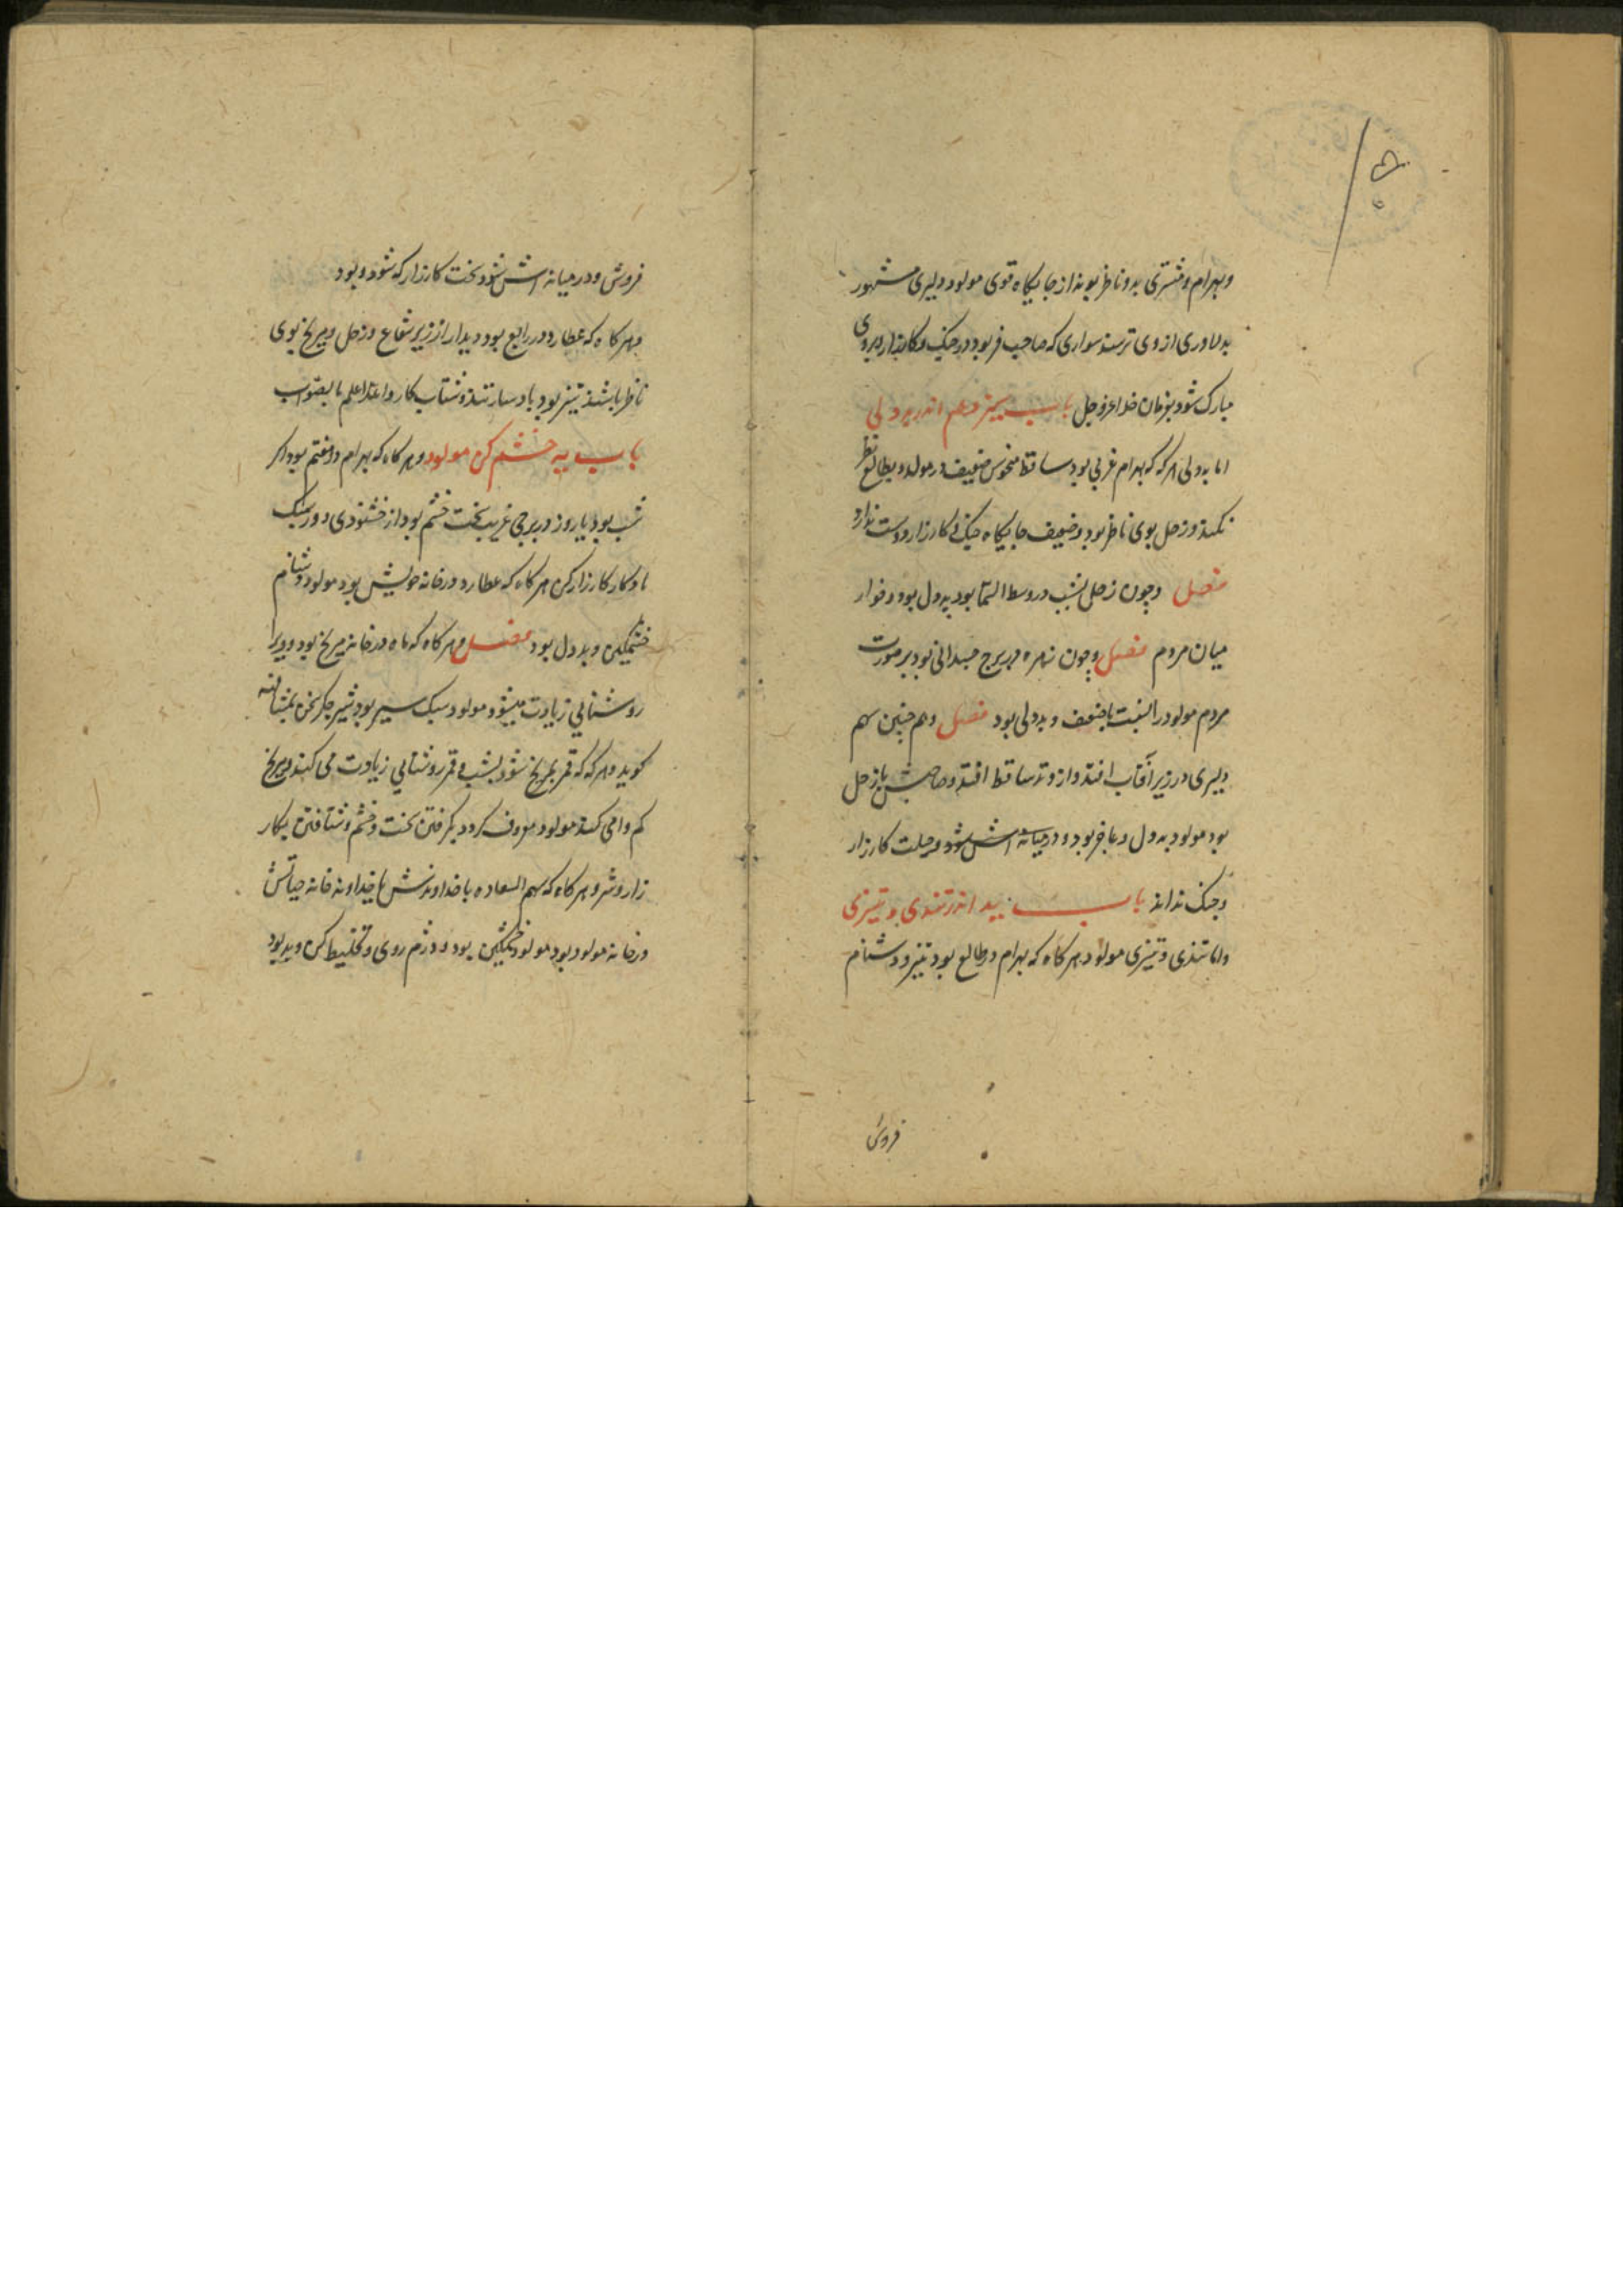 وبهرام ومشتری بدو ناظر بوند از جایگاه قوی مولود دلیری مشهور
بدلاوری از وی ترسند سواری که صاحب فر بود در جنک وکارزار وبروی
مبارک شود بفرمان خدا عزوجل باب سیزدهم اندر بددلی
اما بددلی هرکه که بهرام غربی بود ساقط منحوس ضعیف در مولد وبطالع نظر
نکند وزحل بوی ناظر بود وضعیف جایگاه جنک وکارزار دوست ندارد
فصل وچون زحل بشب در وسط السما بود بددل بود وخوار
میان مردم فصل وچون زهره در برج حیوانی بود بر صورت
مردم مولود را نسبت با ضعف وبددلی بود فصل وهم چنین سهم
دلیری در زیر آفتاب افتد واز وتد ساقط افتد وصاحبش با زحل
بود مولود بددل وعاجز بود ودر میانه اش شود وحیلت کارزار
وجنک نداند باب ید اندر تندی وتیزی
واما تندی وتیزی مولود هر کاه که بهرام در طالع بود تیز ودشنام
فروش
فروش ودر میانه اش شود سخت کارزار که شود وبود
وهر کاه که عطارد در رابع بود ودیدار از زیر شعاع وزحل ومریخ بوی
ناظر باشند تیز بود بادسار تند وشتاب کار والله اعلم بالصواب
باب یه خشم کن مولود وهر کاه که بهرام در هفتم بود اکر
شب بود یا روز در برجی غریب سخت خشم بود از خشنودی دور سبک
با وکار کارزار کن هر کاه که عطارد در خانه خویش بود مولود دشنام
خشمکین وبددل بود فصل وهر کاه که ماه در خانه مریخ بود وویرا
روشنایی زیادت میشود مولود سبک سیر بود شیر جکر سخن بمشافهه
کوید وهر که که قمر بمریخ شود بشب وقمر روشنایی زیادت می کند ومریخ
کم وامی کند مولود معروف کردد بکرفتن سخت وخشم وشتافتن بکار
زار وشر وهر کاه که سهم السعاده با خداوندش یا خداوند خانه حیاتش
در خانه مولود بود مولود خشمکین بود ودژم روی وتخلیط کن وبد بود